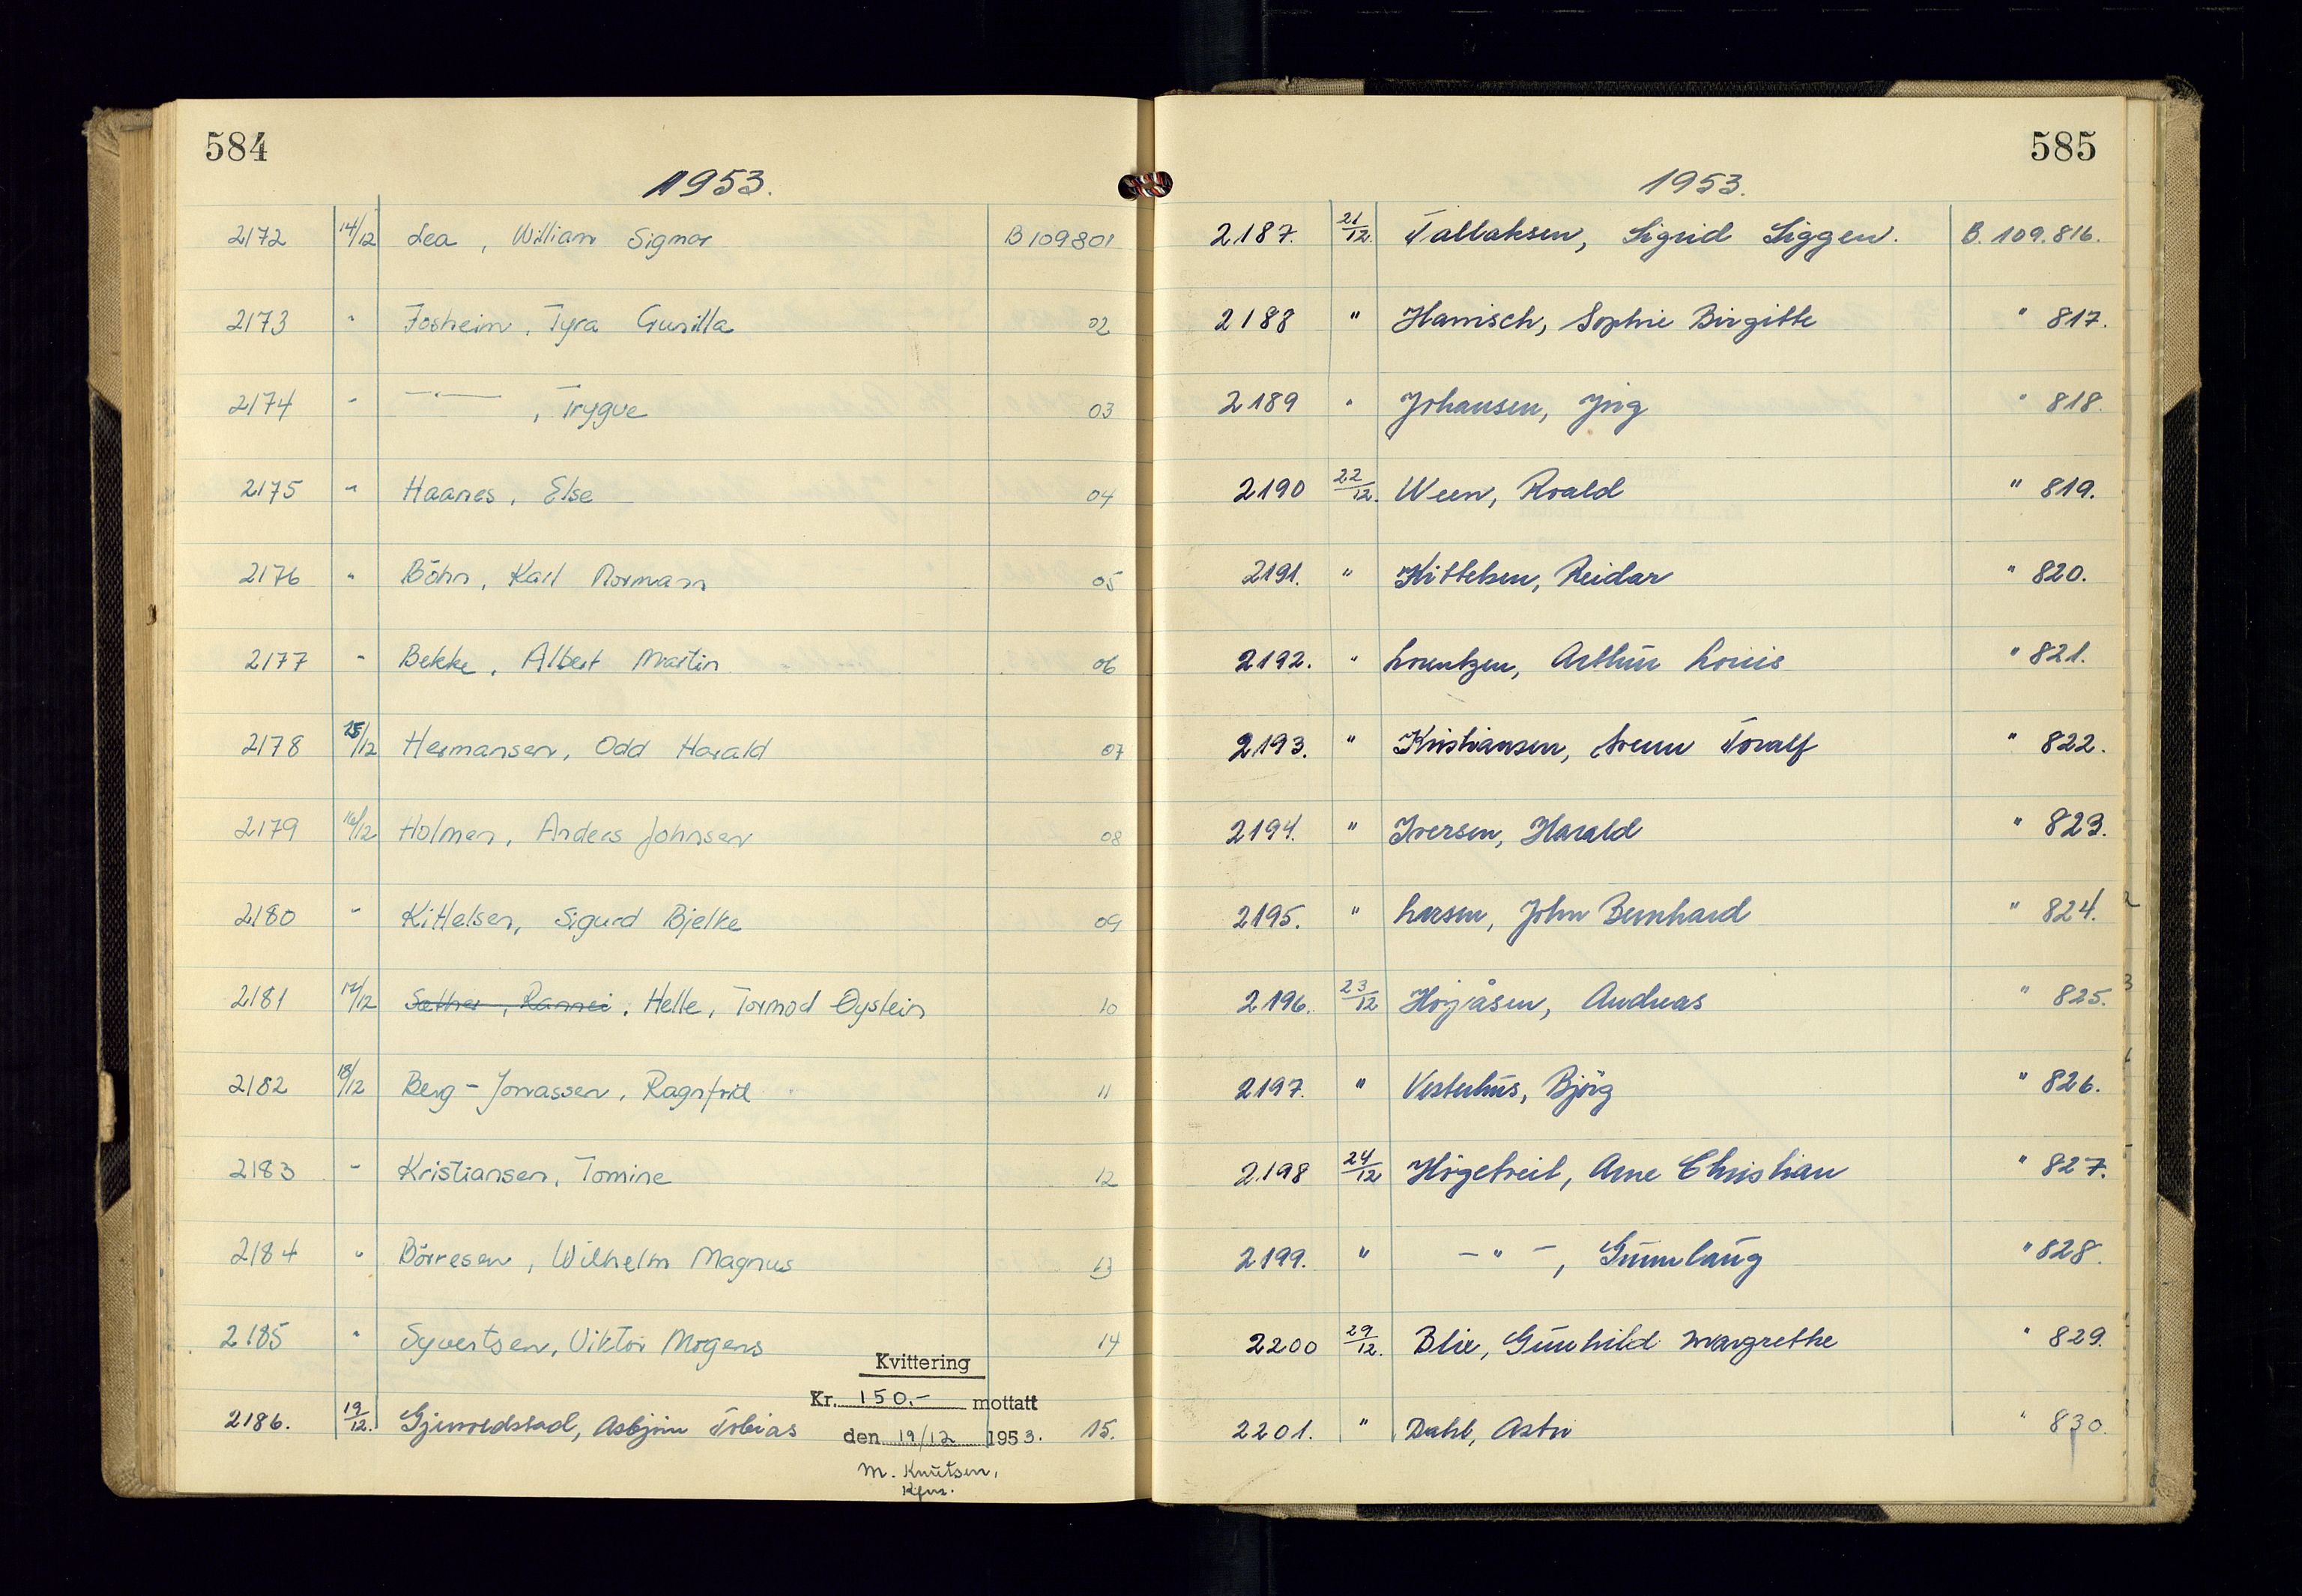 584
1953.
2172 14/12 Lea, William Sigmar B109801
2173 " Fosheim, Tyra Gunilla 02
2174 " —"— , Trygve 03
2175 " Haanes, Else 04
2176 " Böhn, Karl Normann 05
2177 " Bekke, Albert Martin 06
2178 15/12 Hermansen, Odd Harald 07
2179 16/12 Holmen, Anders Johnsen 08
2180 " Kittelsen, Sigurd Bjelke 09
2181 17/12 Sæther, Rannei, Helle, Tormod Øystein 10
2182 18/12 Berg-Jonassen, Ragnfrid 11
2183 " Kristiansen, Tomine 12
2184 " Börresen, Wilhelm Magnus 13
2185 " Syvertsen, Viktor Mogens 14
2186. 19/12. Gjervoldstad, Asbjörn Tobias 15.
Kvittering
Kr. 150.- mottatt
den 19/12 1953.
M. Knutsen,
Kfm.
585
1953.
2187. 21/12. Tallaksen, Sigrid Siggen. B. 109.816.
2188 " Hanisch, Sophie Birgitte " 817.
2189 " Johansen, Jörg " 818.
2190 22/12. Ween, Roald " 819.
2191. " Kittelsen, Reidar " 820.
2192. " Lorentzen, Arthur Louis " 821.
2193. " Kristiansen, Svenn Toralf " 822.
2194. " Iversen, Harald " 823.
2195. " Larsen, John Bernhard " 824.
2196. 23/12 Högåsen, Andreas " 825.
2197. " Vesterhus, Björg " 826.
2198 24/12 Högetveit, Arne Christian " 827.
2199. " —"—, Gunnlaug " 828.
2200 29/12. Blix, Gunhild Margrethe " 829.
2201. " Dahl, Astri " 830.